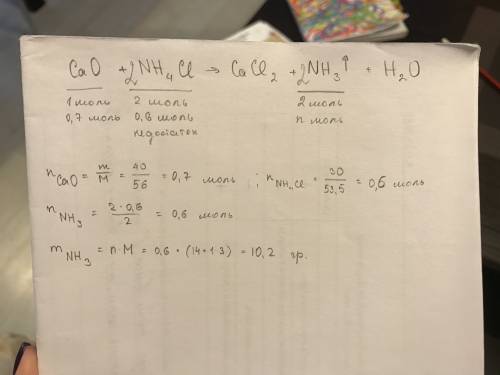 CaO + 2NH₄Cl → CaCl₂ + 2NH₃↑ + H₂O
1 моль 2 моль 2 моль
0,7 моль 0,6 моль n моль
недостаток
n CaO = m/M = 40/56 = 0,7 моль ; n NH₄Cl = 30/53,5 = 0,6 моль
n NH₃ = 2·0,6/2 = 0,6 моль
m NH₃ = n·M = 0,6 · (14+1·3) = 10,2 гр.